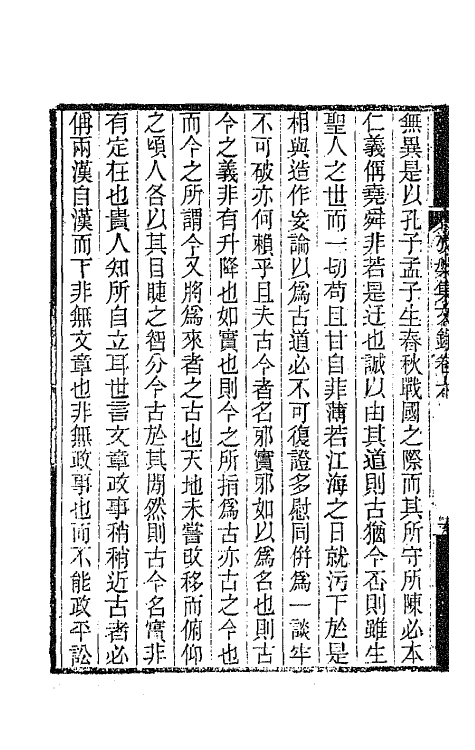 無異是以孔子孟子生春秋戰國之際而其所守所陳必本
仁義偁堯舜非若是迂也誠以由其道則古猶今否則雖生
聖人之世而一切苟且甘自非薄若江海之日就污下於是
相與造作妄論以爲古道必不可復證多慰同倂爲一談牢
不可破亦何賴乎且夫古今者名邪實邪如以爲名也則古
今之義非有升降也如實也則今之所指爲古亦古之今也
而今之所謂今又將爲來者之古也天地未嘗改移而俯仰
之頃人各以其目睫之智分今古於其閒然則古今名實非
有定在也貴人知所自立耳世言文章政事稍稍近古者必
偁兩漢自漢而下非無文章也非無政事也而不能政平訟